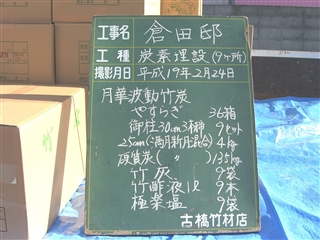 工事名 倉田邸
工種 炭素埋設(9ヶ所)
撮影月日 平成19年2月24日
月華波動竹炭
やすらぎ 36箱
御柱30cm3本締 9セット
25cm(満月新月混合) 4kg
硬質炭( 〃 ) 135kg
竹灰 9袋
竹酢液1ℓ 9本
極楽塩 9袋
古橋竹材店